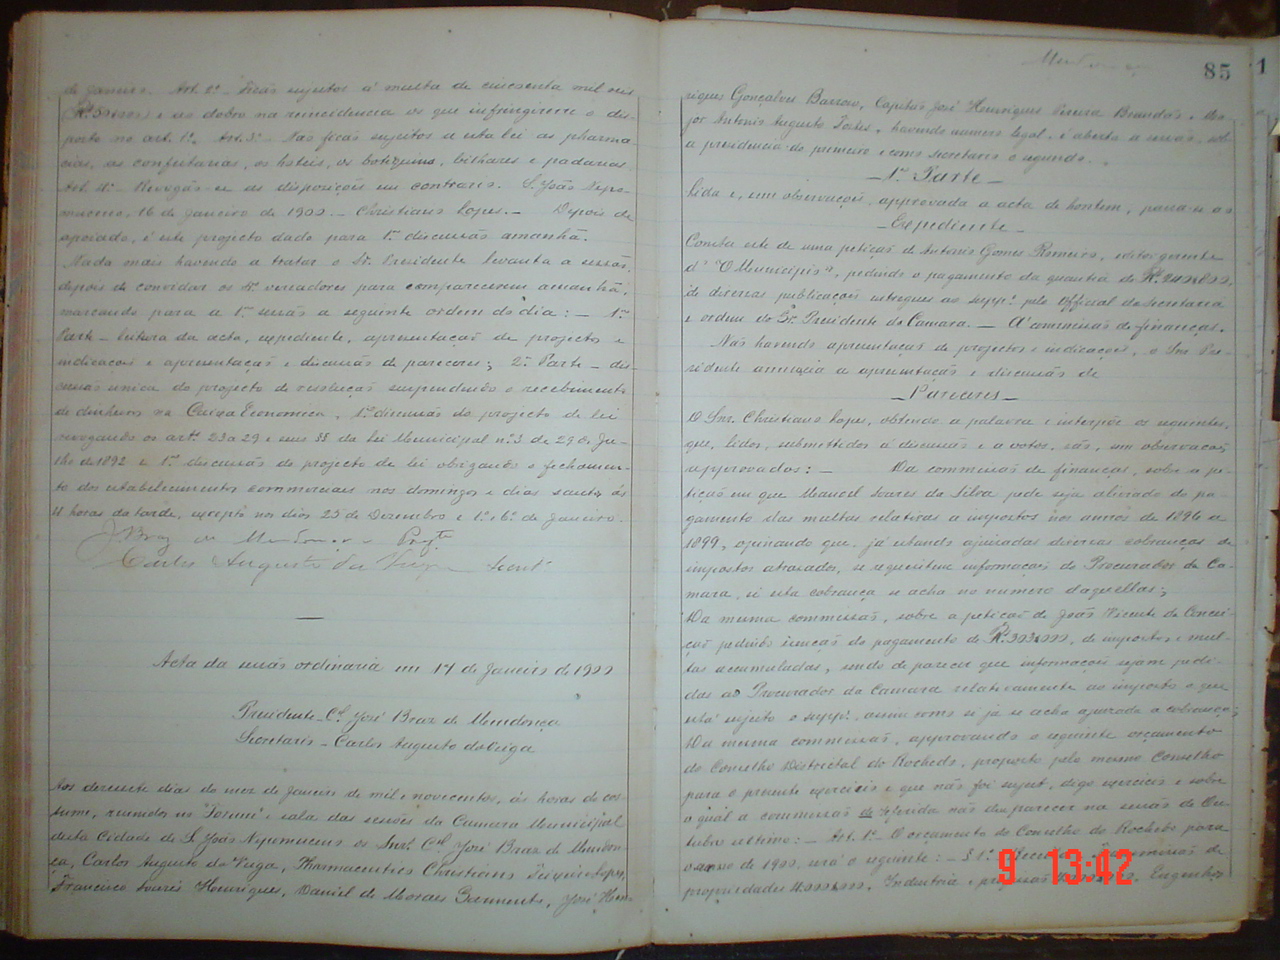 de Janeiro. Art. 2º - Ficão sujeitos á multa de cincoenta mil reis
(Rs. 50$000) e ao dobro na reincidencia os que infringirem o dis-
posto no art. 1º. Art. 3º - Não ficão sujeitos a esta lei as pharma-
cias, as confeitarias, os hoteis, os botequins, bilhares e padarias.
Art. 4º - Revogão-se as disposições em contrario. S. João Nepo-
muceno, 16 de Janeiro de 1900. - Christiano Lopes. - Depois de
apoiado, é este projecto dado para 1ª discussão amanhã.
Nada mais havendo a tratar o Sr. Presidente levanta a sessão,
depois de convidar os Srs. vereadores para comparecerem amanhã,
marcando para a 1ª sessão a seguinte ordem do dia: - 1ª
Parte - leitura da acta, expediente, apresentação de projectos e
indicações e apresentação e discussão de pareceres; 2ª Parte - dis-
cussão unica do projecto de resolução suspendendo o recebimento
de dinheiros na Caixa Economica, 1ª discussão do projecto de lei
revogando os arts. 23 a 29 e seus §§ da lei Municipal nº 3 de 29 de Ju-
lho de 1892 e 1ª discussão do projecto de lei obrigando o fechamen-
to dos estabelecimentos commerciaes nos domingos e dias santos ás
4 horas da tarde, excepto nos dias 25 de Dezembro e 1º e 6 de Janeiro.
J. Braz de Mendonça Presᵗᵉ
Carlos Augusto da Veiga Secretº
Acta da sessão ordinaria em 17 de Janeiro de 1900
Presidente - Cel. José Braz de Mendonça
Secretario - Carlos Augusto da Veiga
Aos dezesete dias do mez de Janeiro de mil e novecentos, ás horas do cos-
tume, reunidos no "Forum" e sala das sessões da Camara Municipal
desta Cidade de S. João Nepomuceno os Snrs. Cel. José Braz de Mendon-
ça, Carlos Augusto da Veiga, Pharmaceutico Christiano Teixeira Lopes,
Francisco Soares Henriques, Daniel de Moraes Sarmento, José Hen-
Mendonça
85
riques Gonçalves Barroso, Capitão José Henriques Pereira Brandão e Ma-
jor Antonio Augusto Torres, havendo numero legal, é aberta a sessão, sob
a presidencia do primeiro e como secretario o segundo.
- 1ª Parte -
Lida e, sem observação, approvada a acta de hontem, passa-se ao
- Expediente -
Consta este de uma petição de Antonio Gomes Romeiro, editor gerente
d' "O Municipio", pedindo o pagamento da quantia de
de diversas publicações entregues ao suppᵉ pelo Official da Secretaria
e ordem do Sr. Presidente da Camara. - Á commissão de finanças.
Não havendo apresentação de projectos e indicações, o Snr. Pre-
sidente annuncia a apresentação e discussão de
- Pareceres -
O Snr. Christiano Lopes, obtendo a palavra e interpõe os seguintes,
que, lidos, submettidos á discussão e a votos, são, sem observação,
approvados: - Da commissão de finanças, sobre a pe-
tição em que Manoel Soares da Silva pede seja aliviado do pa-
gamento das multas relativas a impostos nos annos de 1896 a
1899, opinando que, já estando ajuizadas diversas cobranças de
impostos atrazados, se requesitem informações do Procurador da Ca-
mara, si esta cobrança se acha no numero daquellas;
Da mesma commissão, sobre a petição de João Vicente da Concei-
ção pedindo isenção do pagamento de Rs. 303$000, de impostos e mul-
tas accumuladas, sendo de parecer que informações sejam pedi-
das ao Procurador da Camara relativamente ao imposto a que
está sujeito o suppᵉ, assim como si já se acha ajuizada a cobrança;
Da mesma commissão, approvando o seguinte orçamento
do Conselho Districtal do Rochedo, proposto pelo mesmo Conselho
para o presente exercicio e que não foi sujeit, digo exercicio e sobre
o qual a commissão referida não deu parecer na sessão de Ou-
tubro ultimo: - Art. 1º - O orçamento do Conselho do Rochedo para
o anno de 1900, será o seguinte: - § 1º de
propriedades 4.000$000, Industria e Engenhos
9 13:42
1